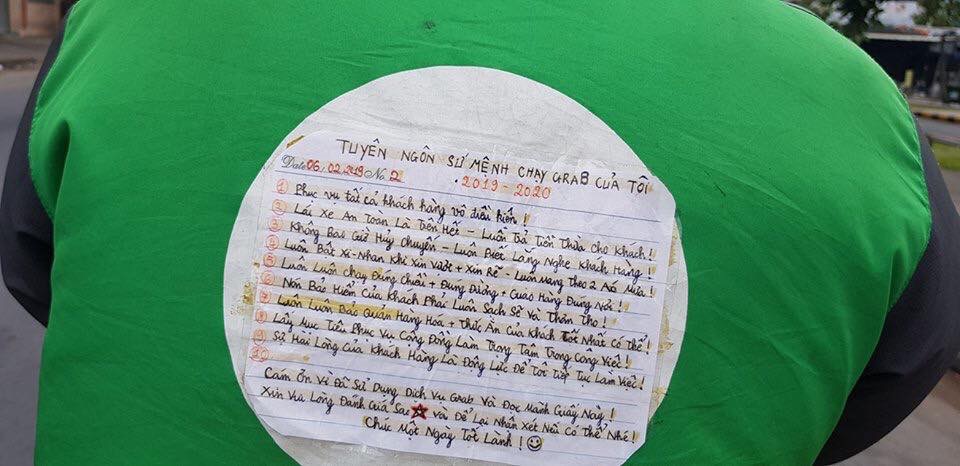 TUYÊN NGÔN SỨ MỆNH CHẠY GRAB CỦA TÔI
Date 06/02.2019 No 2 . 2019 - 2020
1 Phục vụ tất cả khách hàng vô điều kiện !
2 Lái Xe An Toàn Là Trên Hết - Luôn Trả Tiền Thừa Cho Khách !
3 Không Bao Giờ Hủy Chuyến - Luôn Biết Lắng Nghe Khách Hàng !
4 Luôn Bật Xi-Nhan Khi Xin Vượt + Xin Rẽ - Luôn Mang Theo 2 Áo Mưa !
5 Luôn Luôn Chạy Đúng Chiều + Đúng Đường + Giao Hàng Đúng Nơi !
6 Nón Bảo Hiểm Của Khách Phải Luôn Sạch Sẽ Và Thơm Tho !
7 Luôn Luôn Bảo Quản Hàng Hóa + Thức Ăn Của Khách Tốt Nhất Có Thể !
8 Lấy Mục Tiêu Phục Vụ Cộng Đồng Làm Trọng Tâm Trong Công Việc !
9 Sự Hài Lòng Của Khách Hàng Là Động Lực Để Tôi Tiếp Tục Làm Việc !
10
Cám Ơn Vì Đã Sử Dụng Dịch Vụ Grab Và Đọc Mảnh Giấy Này !
Xin Vui Lòng Đánh Giá Sao Và Để Lại Nhận Xét Nếu Có Thể Nhé !
Chúc Một Ngày Tốt Lành !